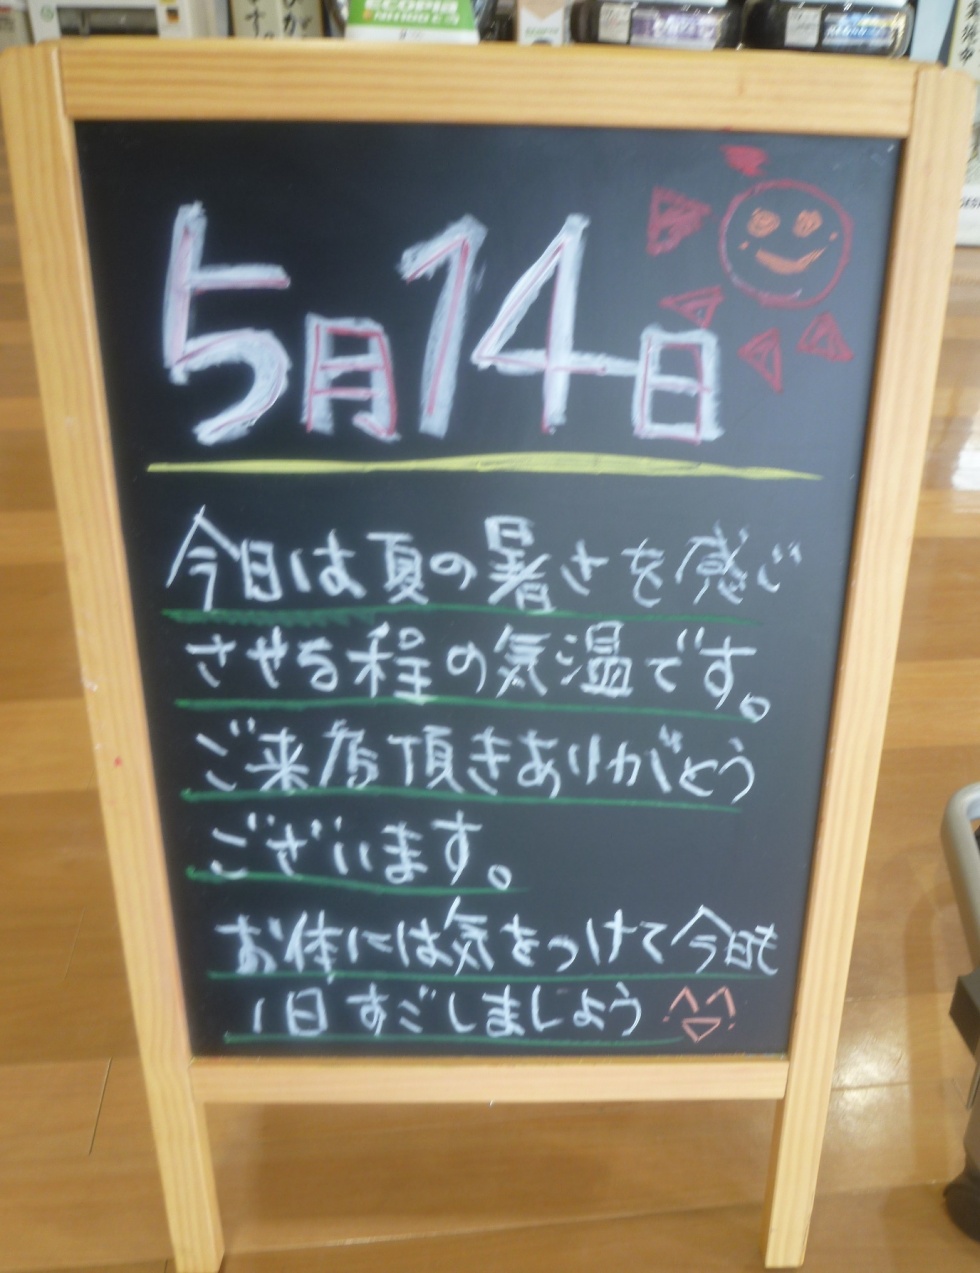 ECOPIA
5月14日
今日は夏の暑さを感じ
させる程の気温です。
ご来店頂きありがとう
ございます。
お体には気をつけて今日も
1日すごしましょう